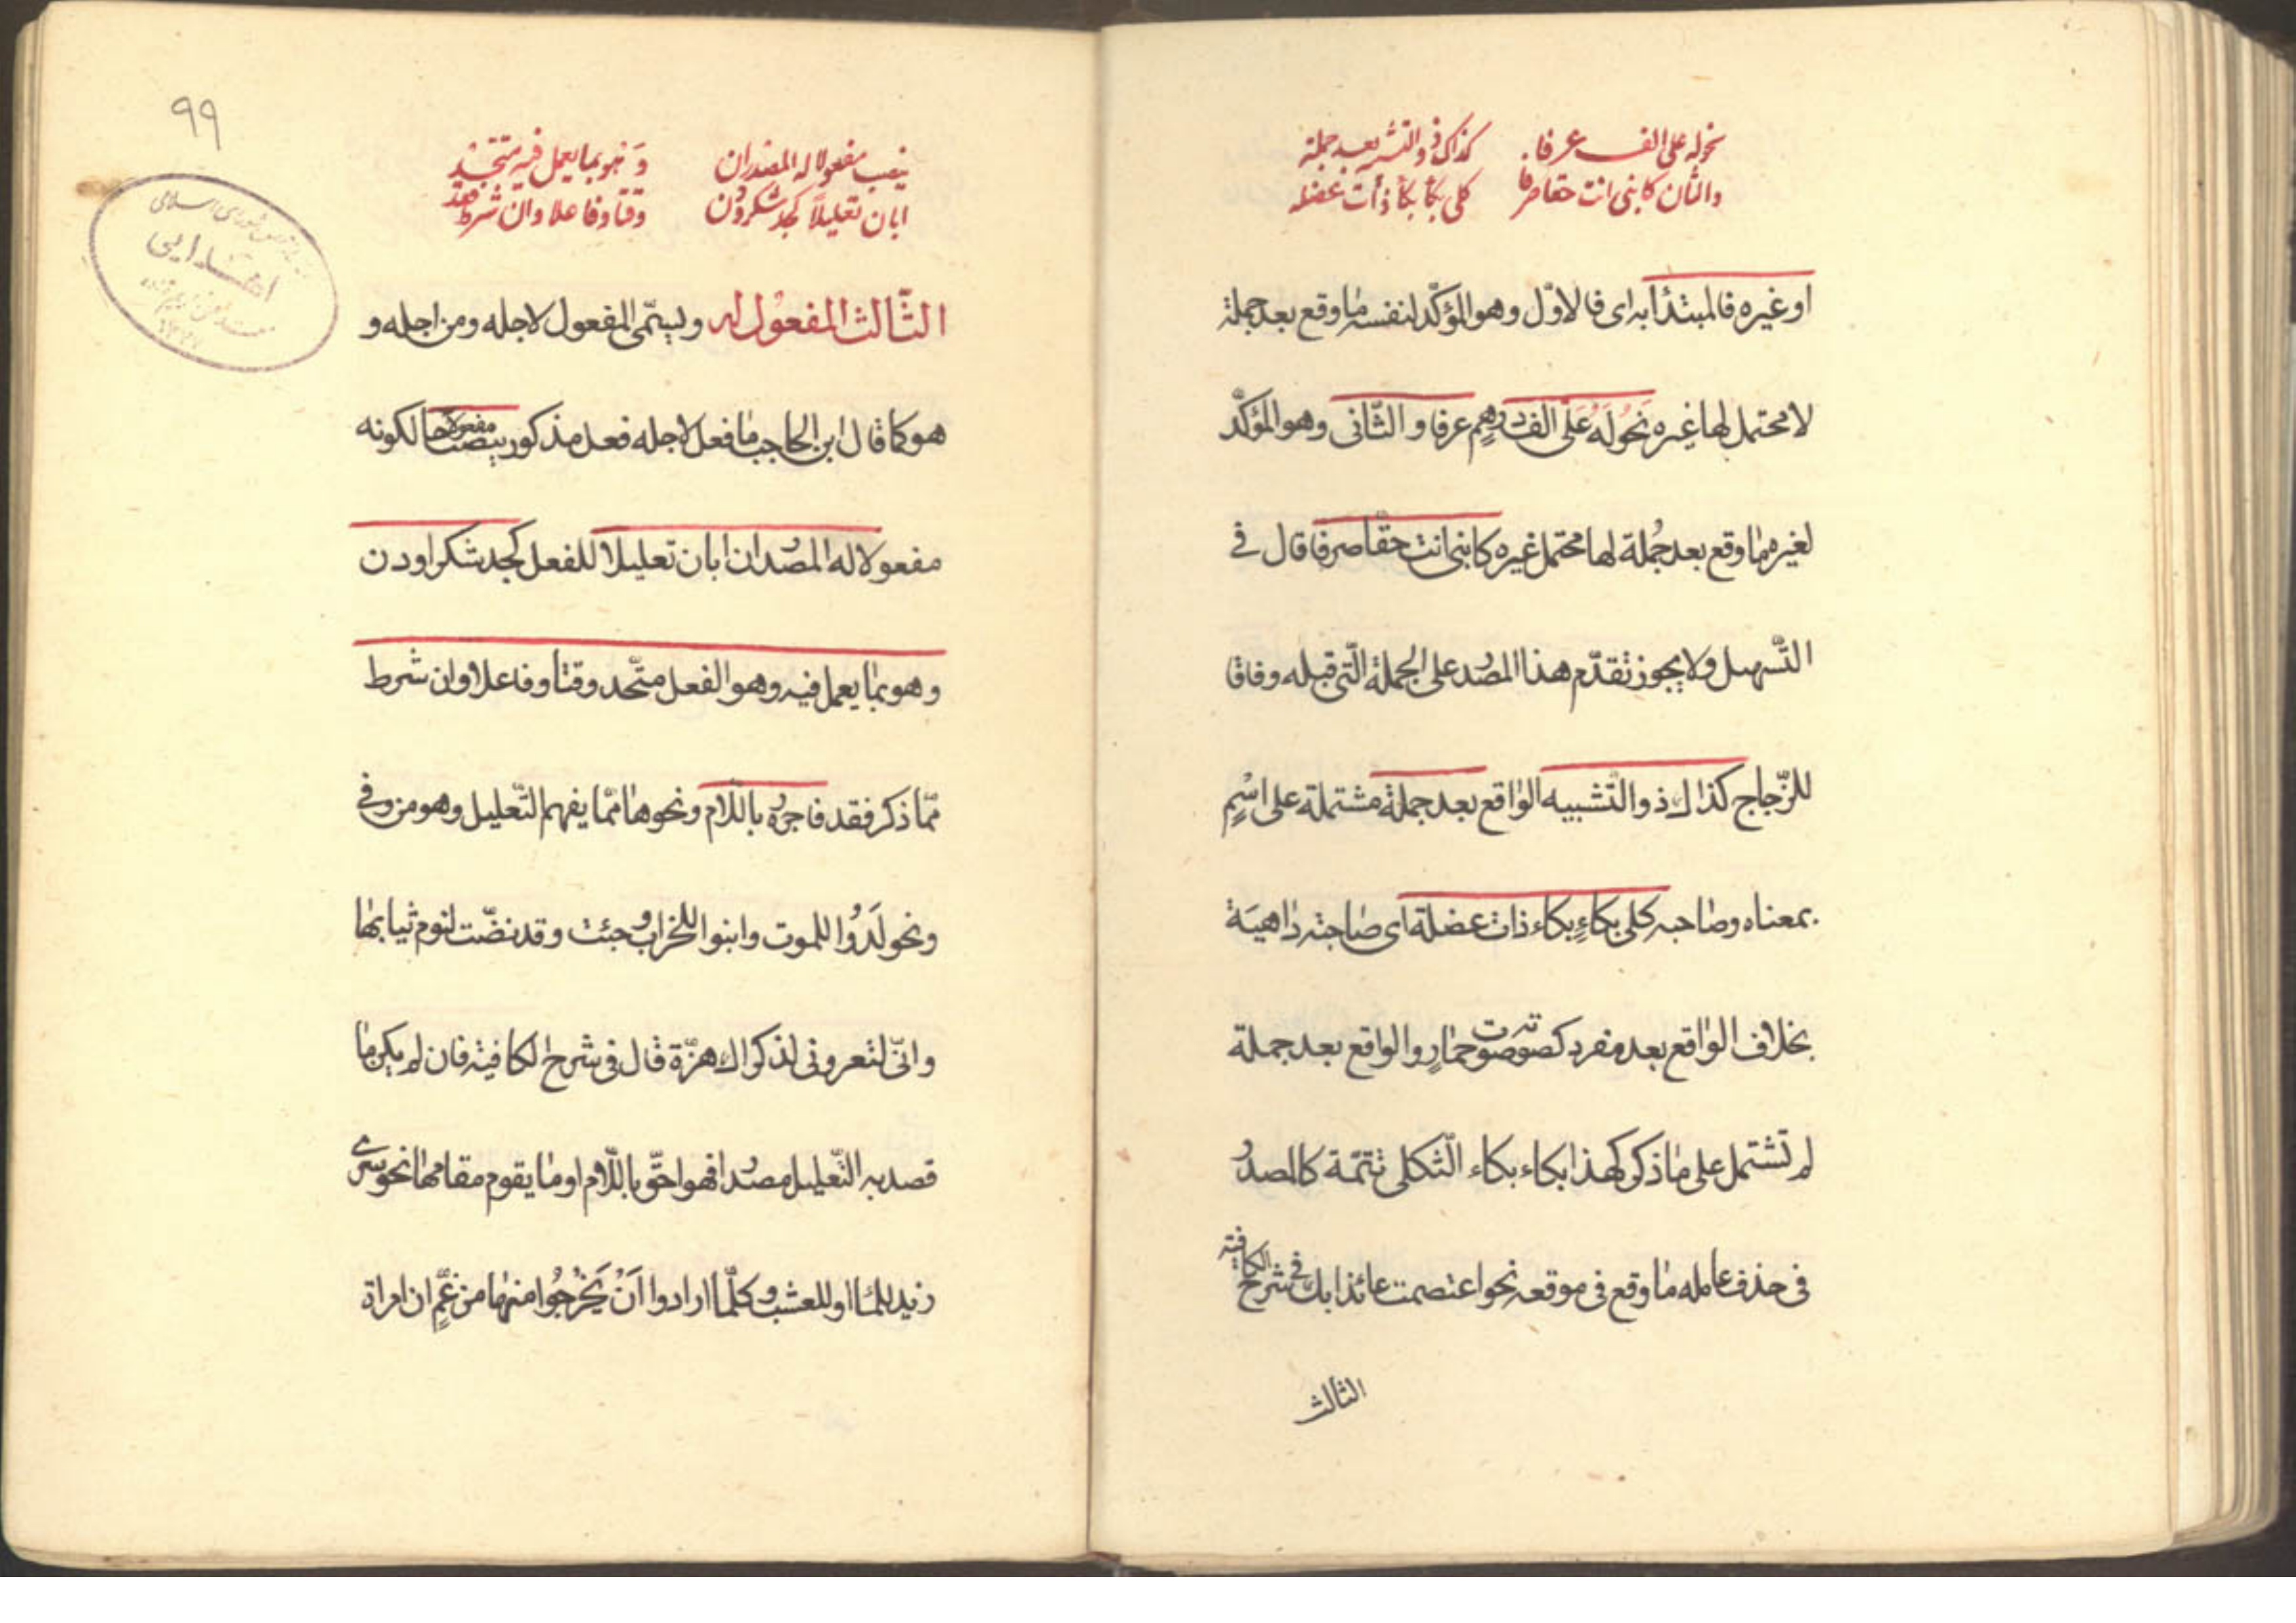 نحو له على الف عرفا كذاك ذو التشبيه بعد جمله
والثان كابنى انت حقا صرفا كلى بكا بكاء ذات عضله
او غيره فالمبتدأ به اى فالاوّل وهو المؤكّد لنفسه ما وقع بعد جملة
لا محتمل لها غيره نَحوُ لَهُ عَلَىَّ الف درهم عرفا و الثّانى وهو المؤكّد
لغيره ما وقع بعد جُملة لها محتمل غيره كابنى انت حقّا صرفا قال فى
التّسهيل ولا يجوز تقدّم هذا المصدر على الجملة الّتى قبله وفاقا
للزّجاج كذاك ذو التّشبيه الواقع بعد جملة مشتملة على اسْمٍ
بمعناه وصاحبه كلى بكاءٍ بكاء ذات عضلة اى صاحبة داهيَة
بخلاف الواقع بعد مفرد كصوته صوت حمارٍ والواقع بعد جملة
لم تشتمل على ما ذكر كهذا بكاء بكاء الثّكلى تتمّة كالمصدر
فى حذف عامله ما وقع فى موقعه نحو اعتصمت عائذا بك فى شرح الكافية
الثالث
٩٩
ينصب مفعولا له المصدر ان وَهْو بما يعمل فيه متّحد
ابان تعليلاً كجد شكرا ودن وقتا وفاعلا وان شرط فقد
اهدايى
الثّالث المفعُول له ويسمّى المفعول لاجله ومن اجله و
هو كما قال ابن الحاجب ما فعل لاجله فعل مذكور ينصب مفعولا حا لكونه
مفعولا له المصدر ان ابان تعليلا للفعل كجد شكرا ودن
وهو بما يعمل فيه وهو الفعل متّحد وقتا وفاعلا وان شرط
ممّا ذكر فقد فاجرره باللّام ونحوها ممّا يفهم التّعليل وهو من وفى
ونحو لَدُوا للموت وابنوا للخراب و جئت وقد نضّت لنوم ثيابها
وانّى لتعرونى لذكراك هزّة قال فى شرح الكافية فان لم يكن ما
قصد به التّعليل مصدرا فهو احقّ باللّام او ما يقوم مقامها نحو سرى
زيد للماء او للعشب و كلّما ارادوا اَنْ يَخْرجُوا منها من غمٍّ ان امراة